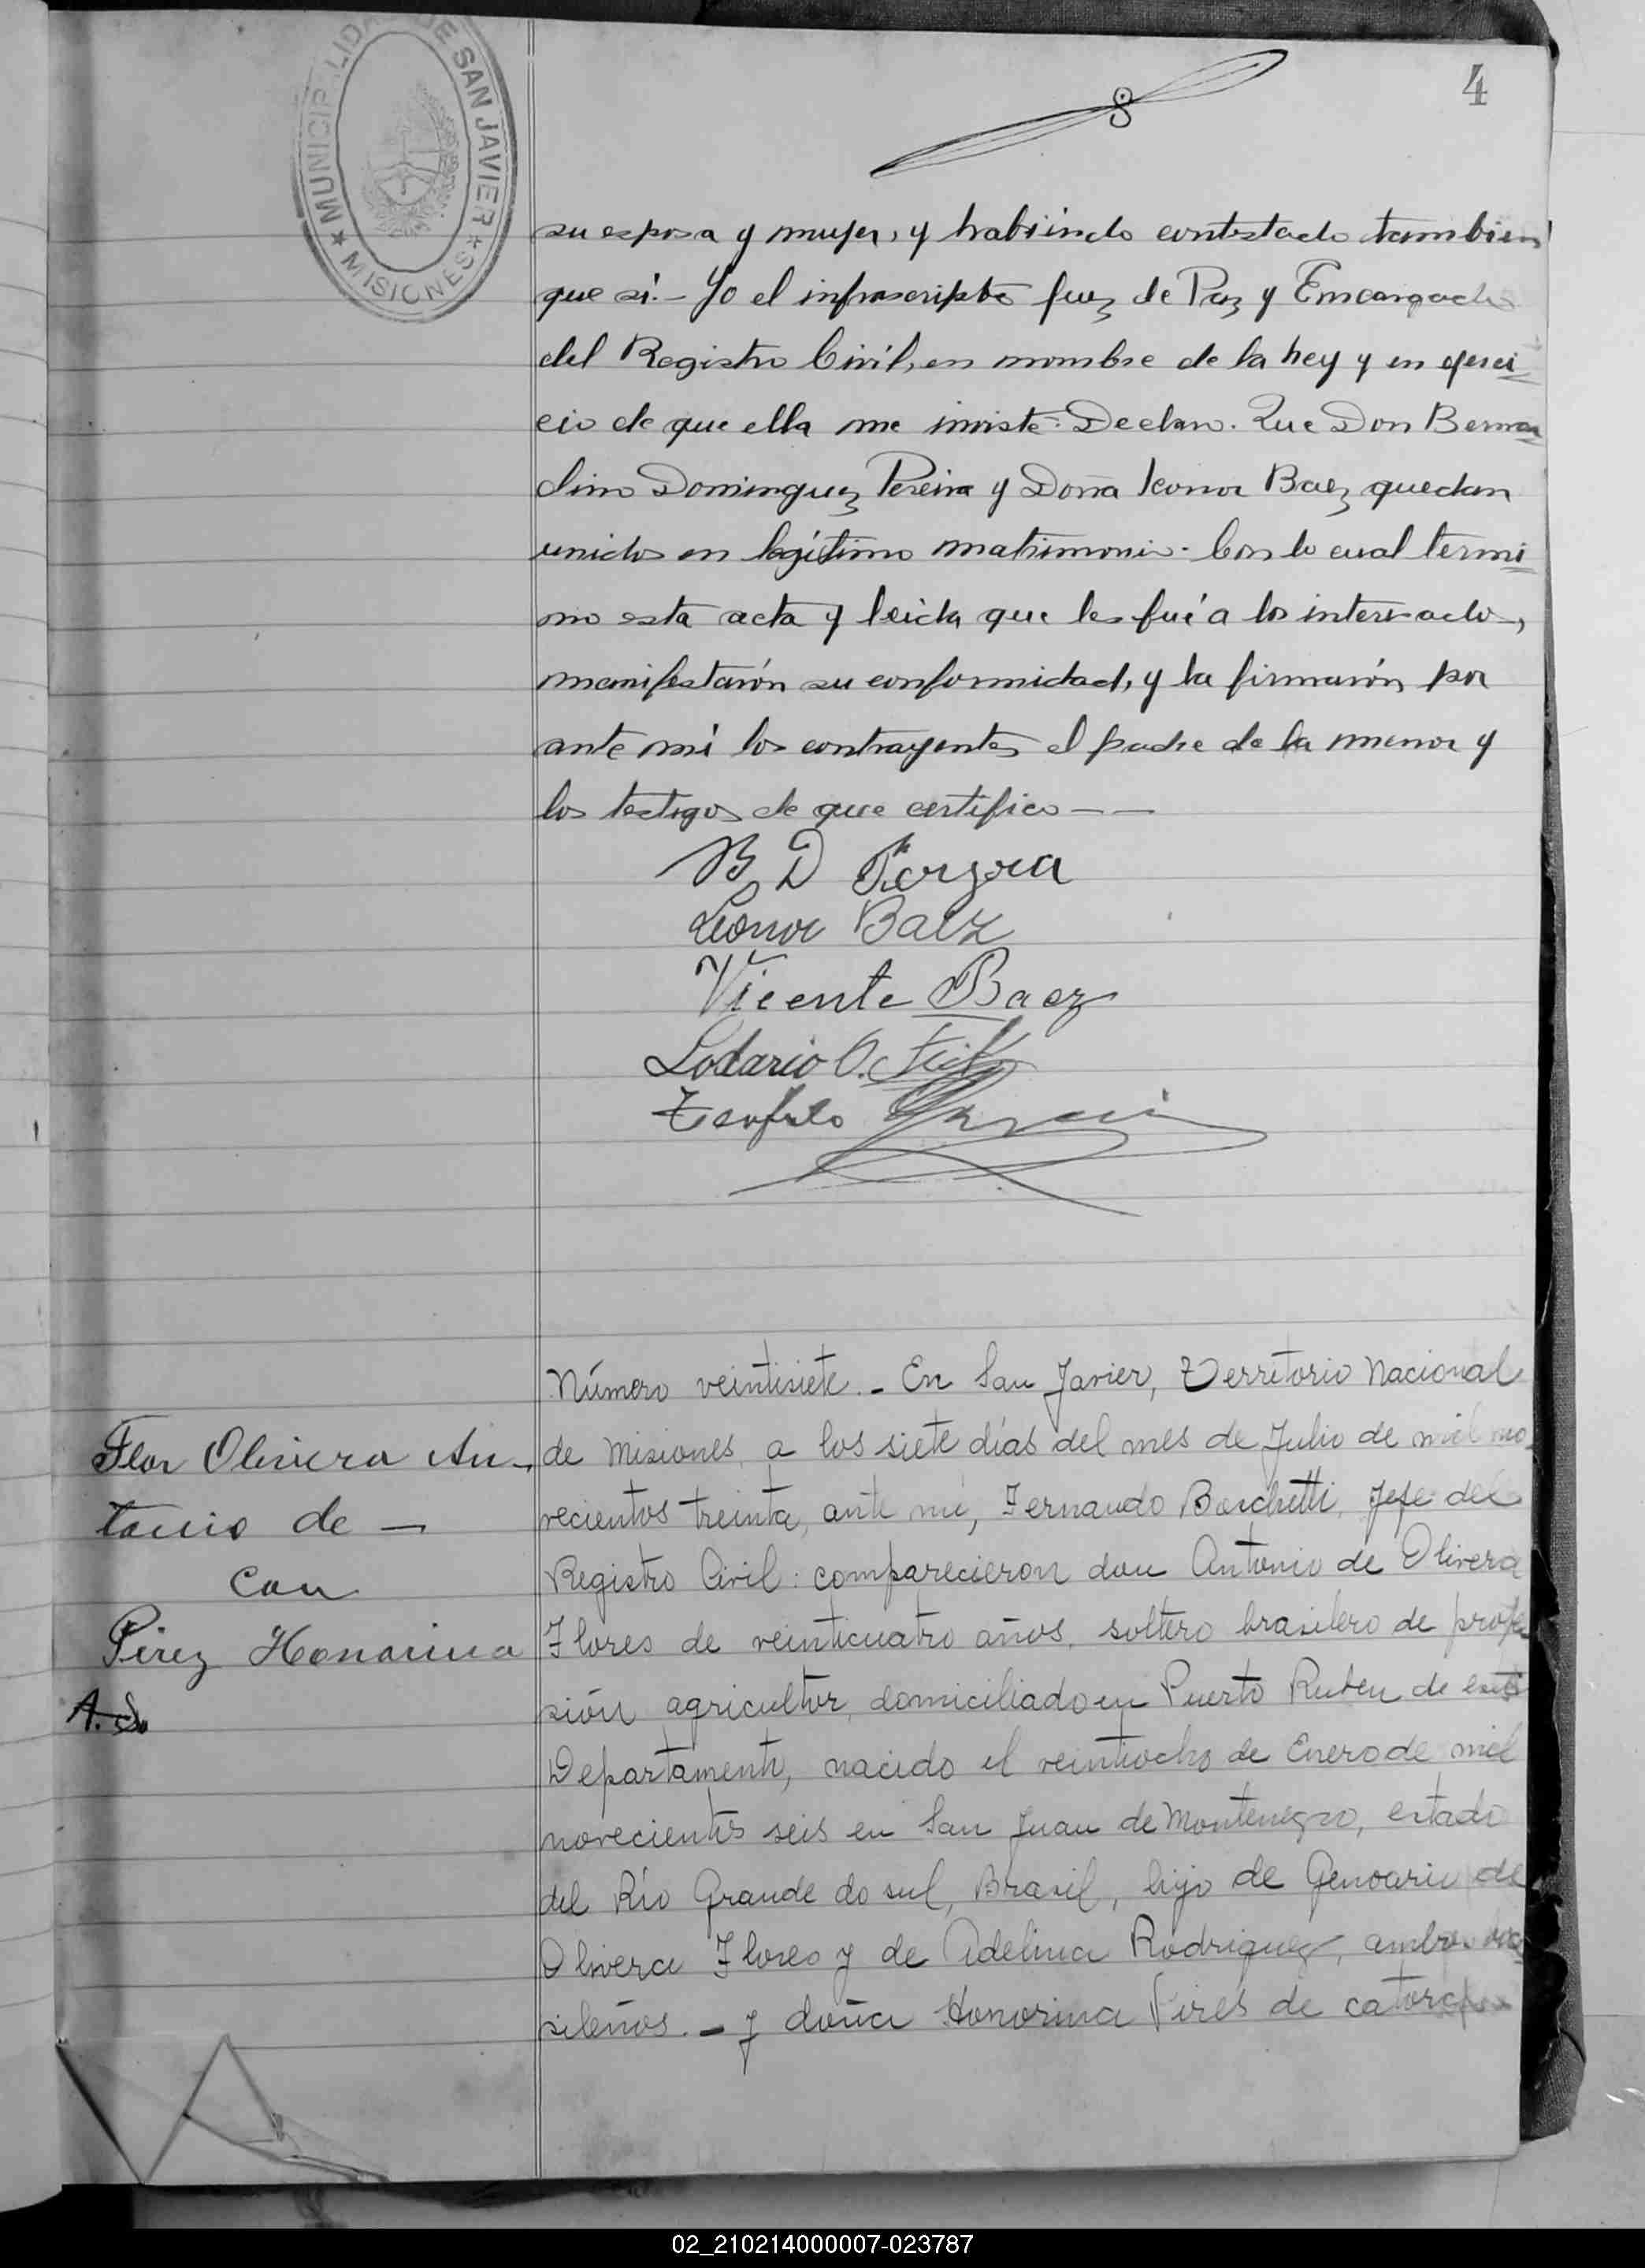 MUNICIPALIDAD DE SAN JAVIER
★ MISIONES ★
4
su esposa y mujer, y habiéndo contestado tambien
que sí.- Yo el infrascripto Juez de Paz y Encargado
del Registro Civil, en nombre de la Ley y en ejerci
cio de que ella me inviste: Declaro. Que Don Bernar
dino Dominguez Pereira y Doña Leonor Baez quedan
unidos en legítimo matrimonio. Con lo cual termi
no esta acta y leída que les fué a los interesados,
manifestarón su conformidad, y la firmarón por
ante mí los contrayentes el padre de la menor y
los testigos de que certifico — —
B D Pereyra
Leonor Baez
Vicente Baez
Lodario O.
Teofilo
Número veintisiete.- En San Javier, Territorio Nacional
de Misiones, a los siete días del mes de Julio de mil no
vecientos treinta, ante mí, Fernando Borchetti, Jefe del
Registro Civil: comparecieron don Antonio de Olivera
Flores de veinticuatro años, soltero brasilero de profe
sión agricultor, domiciliado en Puerto Ruben de este
Departamento, nacido el veintiocho de Enero de mil
novecientos seis en San Juan de Montenegro, estado
del Río Grande do sul, Brasil, hijo de Genoario de
Olivera Flores y de Adelina Rodriguez, ambos bra
sileños. - y doña Honorina Pires de catorce
Flor Olivera An-
tonio de —
con
Pirez Honorina
A. S.
02_210214000007-023787